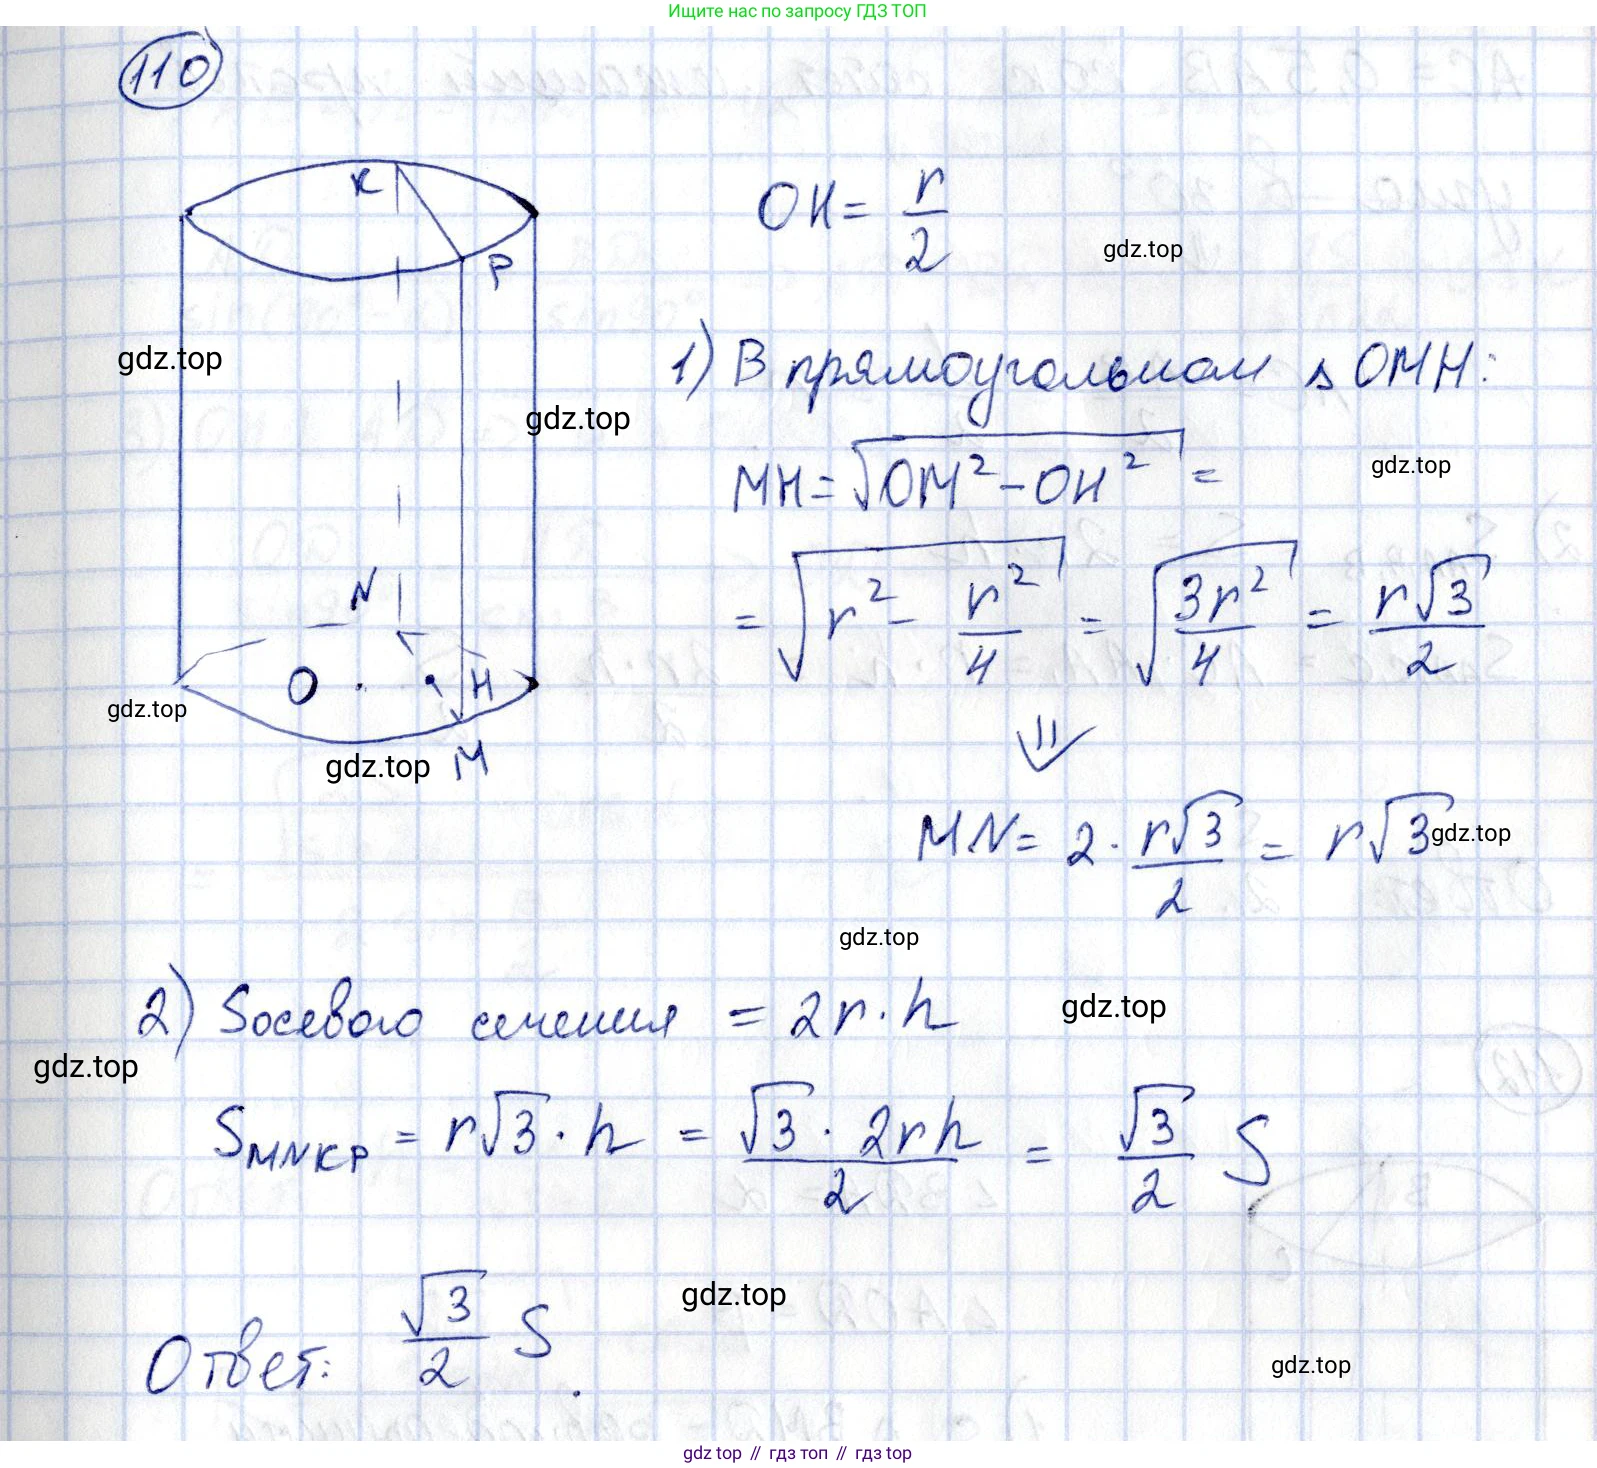 Ищите нас по запросу ГДЗ ТОП
110
K
P
N
O
H
M
OH = r/2
gdz.top
gdz.top
gdz.top
1) В прямоугольном Δ OMH:
MH = √(OM² - OH²) =
gdz.top
= √(r² - r²/4) = √(3r²/4) = r√3/2
gdz.top
gdz.top
⇓
MN = 2 · r√3/2 = r√3
gdz.top
gdz.top
2) Sосевого сечения = 2r · h
gdz.top
gdz.top
S_MNKP = r√3 · h = √3 · 2rh/2 = √3/2 S
gdz.top
Ответ: √3/2 S.
gdz.top
gdz.top // гдз топ // гдз top